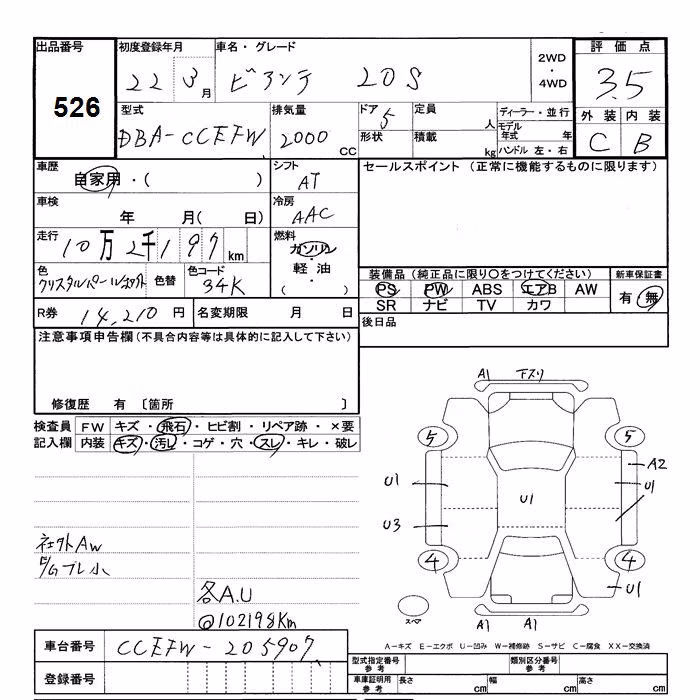 出品番号 初度登録年月 車名・グレード 2WD 評価点
526 22 3月 ビアンテ 20S ・ 4WD 3.5
型式 排気量 ドア 5 定員 人 ディーラー・並行 外装 内装
DBA-CCEFW 2000 CC 形状 積載 kg モデル年式 年 C B
ハンドル 左・右
車歴 シフト セールスポイント (正常に機能するものに限ります)
自家用・( ) AT
車検 冷房
年 月( 日) AAC
走行 燃料
10万2千197km ガソリン
色 色替 色コード ・ 装備品 (純正品に限り○をつけてください) 新車保証書
クリスタルパール 34K 軽油 PS PW ABS エアB AW 有・無
( ・ ) SR ナビ TV カワ
R券 14,210円 名変期限 月 日 後日品
注意事項申告欄 (不具合内容等は具体的に記入して下さい)
修復歴 有 〔箇所 〕
検査員 FW キズ・飛石・ヒビ割・リペア跡・×要
記入欄 内装 キズ・汚レ・コゲ・穴・スレ・キレ・破レ
A1 下スリ
5 5
A2
U1 U1 U1
U3
4 4
U1
A1 A1
スペア
AW
小
各A.U
@102198Km
A-キズ E-エクボ U-凹み W-補修跡 S-サビ C-腐食 XX-交換済
車台番号 CCEFW-205907
型式指定番号 参考 類別区分番号 参考
登録番号 車庫証明用 参考 長さ cm 幅 cm 高さ cm